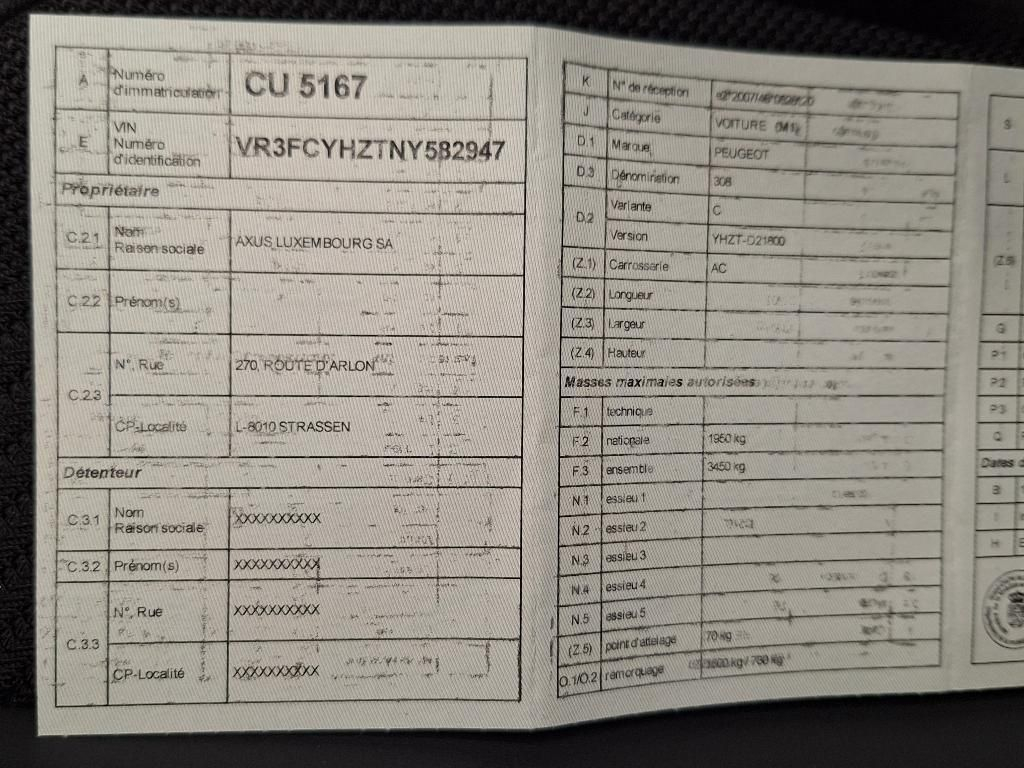 A Numéro d'immatriculation CU 5167
E VIN Numéro d'identification VR3FCYHZTNY582947
Propriétaire
C.2.1 Nom Raison sociale AXUS LUXEMBOURG SA
C.2.2 Prénom(s)
C.2.3 N°, Rue 270, ROUTE D'ARLON
CP-Localité L-8010 STRASSEN
Détenteur
C.3.1 Nom Raison sociale XXXXXXXXXX
C.3.2 Prénom(s) XXXXXXXXXX
C.3.3 N°, Rue XXXXXXXXXX
CP-Localité XXXXXXXXXX
K N° de réception
J Catégorie VOITURE (M1)
D.1 Marque PEUGEOT
D.3 Dénomination 308
D.2 Variante C
Version YHZT-D21800
(Z.1) Carrosserie AC
(Z.2) Longueur
(Z.3) Largeur
(Z.4) Hauteur
Masses maximales autorisées
F.1 technique
F.2 nationale 1950 kg
F.3 ensemble 3450 kg
N.1 essieu 1
N.2 essieu 2
N.3 essieu 3
N.4 essieu 4
N.5 essieu 5
(Z.5) point d'attelage 70 kg
O.1/O.2 remorquage
S
L
(Z.6)
G
P1
P2
P3
Q
Dates
B
I
H